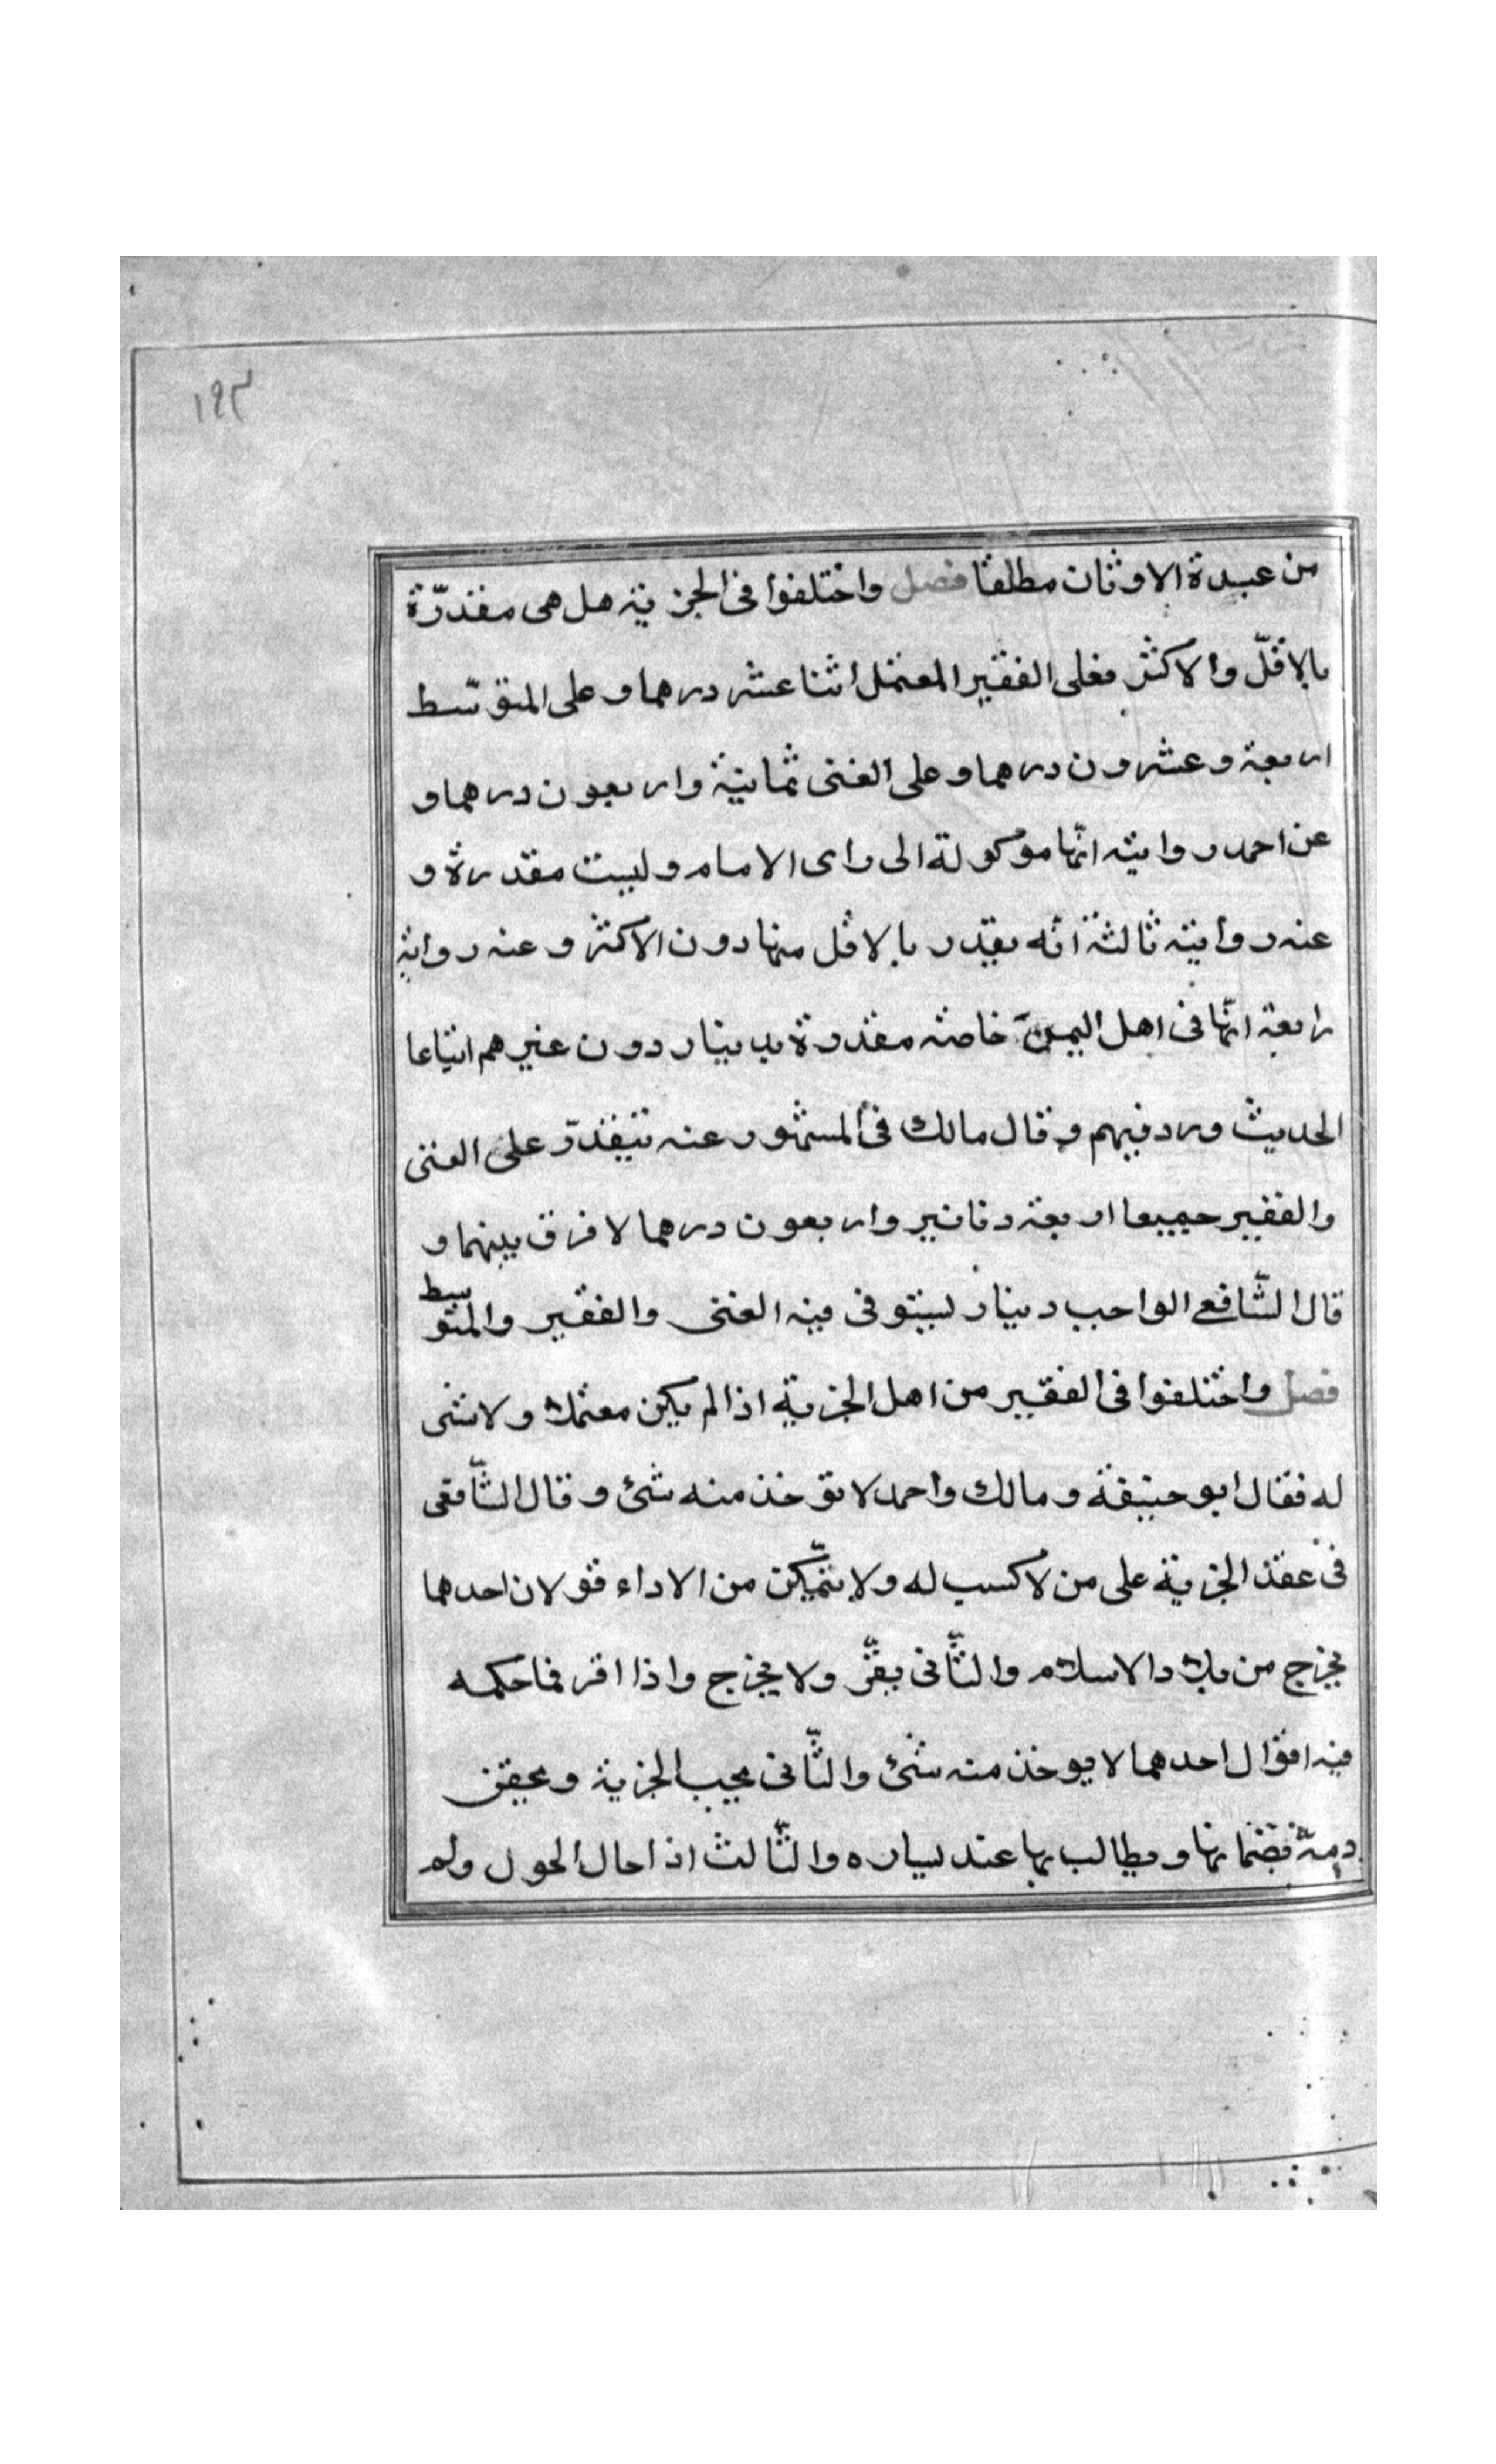 ١٩٣
من عبدة الاوثان مطلقا فصل واختلفوا فى الجزية هل هى مقدرّة
بالاقلّ والاكثر فعلى الفقير المعتمل اثنا عشر درهما و على المتوسّط
اربعة وعشرون درهما و على الغنى ثمانية واربعون درهما و
عن احمد رواية انّها موكولة الى راى الامام وليست مقدرة و
عنه رواية ثالثة انّه يقدّر بالاقل منها دون الاكثر و عنه رواية
رابعة انّها فى اهل اليمن خاصة مقدرة بدينار دون غيرهم اتباعا
الحديث ورد فيهم و قال مالك فى المشهور عنه تتقدّر على الغنى
والفقير جميعا اربعة دنانير واربعون درهما لا فرق بينهما و
قال الشّافعى الواجب دينار يستوفى فيه الغنى والفقير والمتوسط
فصل واختلفوا فى الفقير من اهل الجزية اذا لم يكن معتملا ولا شى
له فقال ابو حنيفة ومالك واحمد لا توخذ منه شئ وقال الشّافعى
فى عقد الجزية على من لا كسب له ولا يتمّكن من الاداء قولان احدهما
يخرج من بلاد الاسلام والثّانى يقرّ ولا يخرج واذا اقر فما حكمه
فيه اقوال احدهما لا يوخذ منه شئ والثّانى يجب الجزية و يحقن
دمه بضمانها ويطالب بها عند يساره والثّالث اذا حال الحول ولم